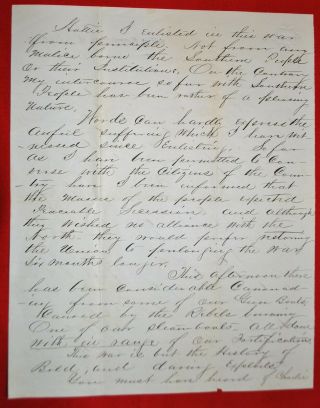 Hattie I enlisted in this war
from principle. Not from any
malice towards the Southern People
or their Institutions. On the Contrary
my intercourse so far with Southern
People has been rather of a pleasing
Nature.
Words Can hardly express the
awful suffering which I have wit
-nessed since Enlisting. So far
as I have been permitted to Con
-verse with the Citizens of the Coun
-try have I been informed that
the masses of the people expected
Peaceable Secession and although
they wished no alliance with the
North, they would prefer restoring
the Union to prolonging the war
Six months longer.
This afternoon there
has been Considerable Cannonad
-ing from some of our Gun Boats
Caused by the Rebels burning
One of our steamboats. All done
with in range of our Fortifications
This war is but the History of
Bold and daring exploits.
You must have heard of